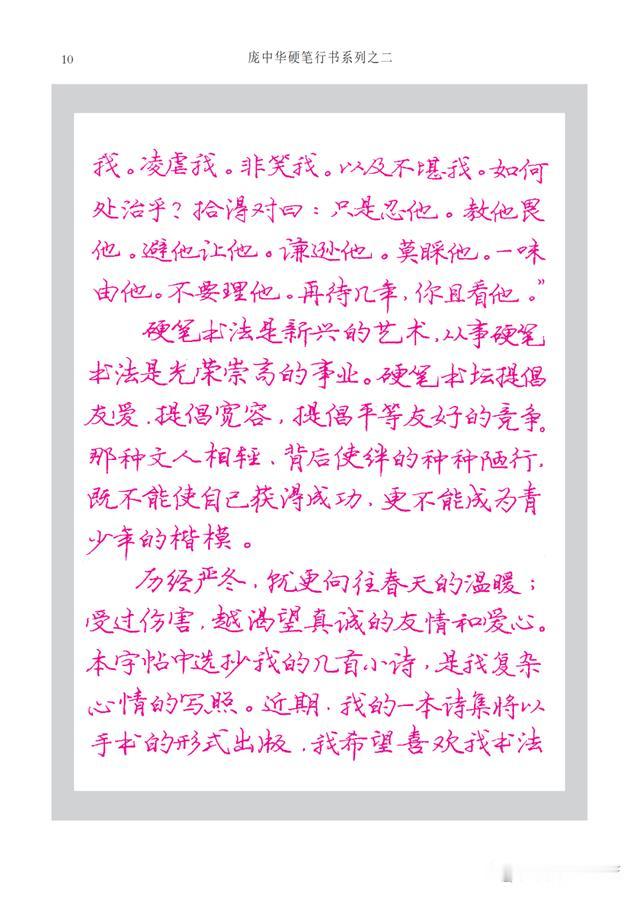 10
庞中华硬笔行书系列之二
我。凌虐我。非笑我。以及不堪我。如何
处治乎？拾得对曰：只是忍他。教他畏
他。避他让他。谦逊他。莫睬他。一味
由他。不要理他。再待几年，你且看他。”
硬笔书法是新兴的艺术，从事硬笔
书法是光荣崇高的事业。硬笔书坛提倡
友爱，提倡宽容，提倡平等友好的竞争。
那种文人相轻、背后使绊的种种陋行，
既不能使自己获得成功，更不能成为青
少年的楷模。
历经严冬，就更向往春天的温暖；
受过伤害，越渴望真诚的友情和爱心。
本字帖中选抄我的几首小诗，是我复杂
心情的写照。近期，我的一本诗集将以
手书的形式出版，我希望喜欢我书法